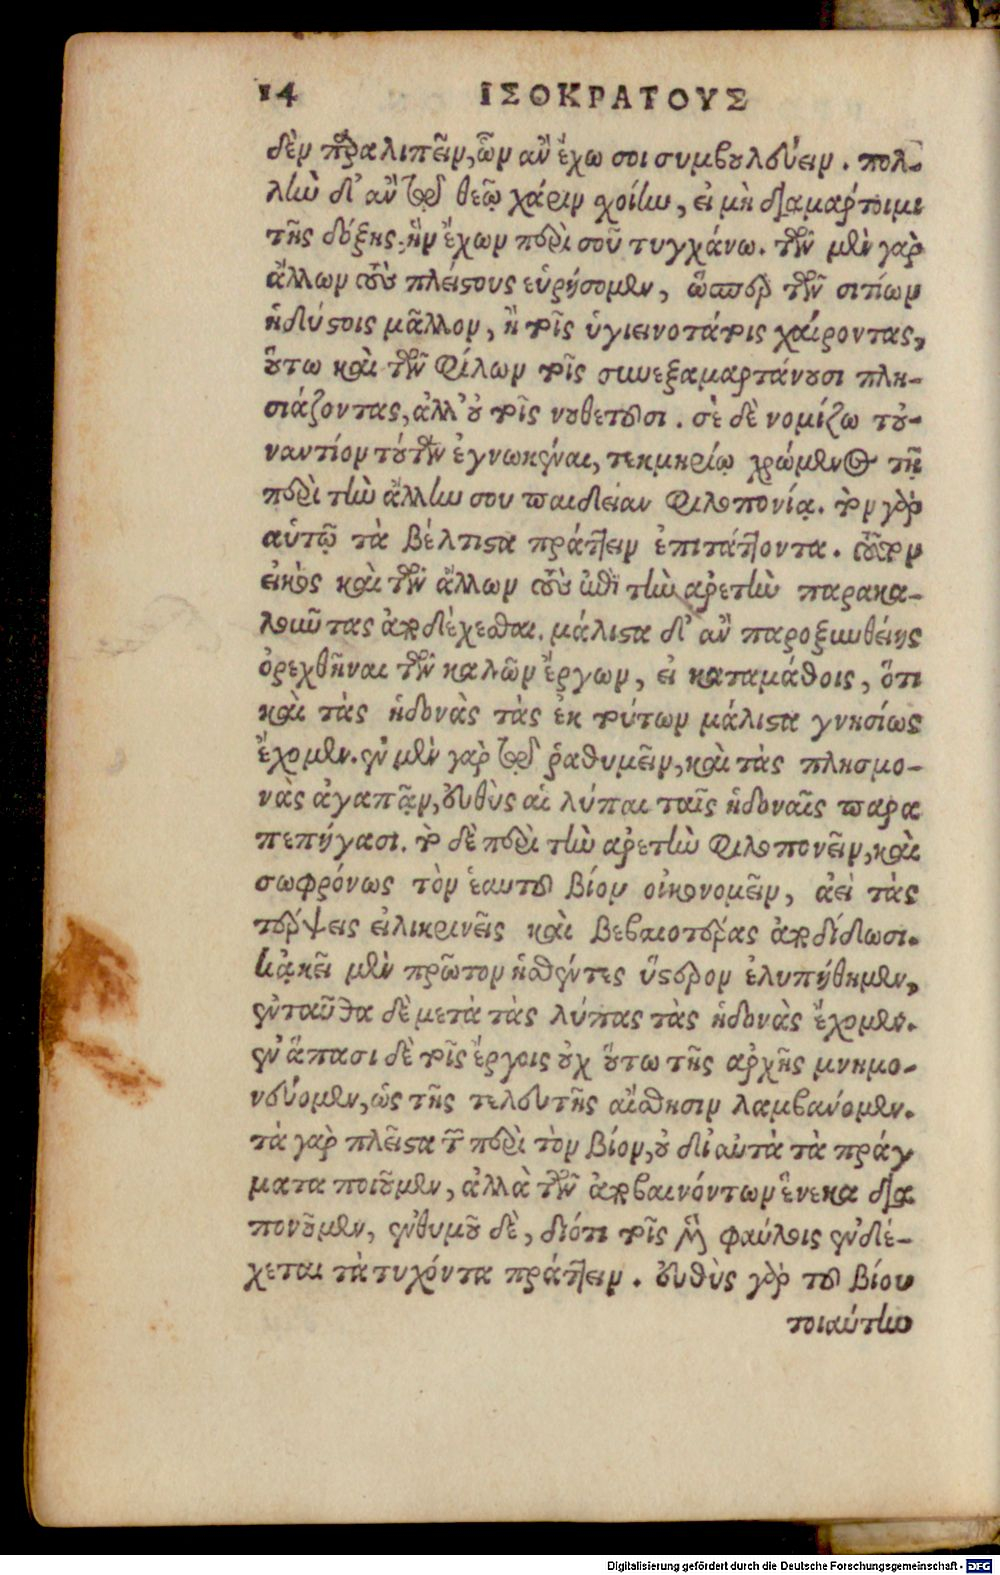 14 ΙΣΟΚΡΑΤΟΥΣ
δὲν παραλιπεῖν, ὧν ἂν ἔχω σοι συμβουλεύειν. πολ-
λὴν δ' ἂν τῷ θεῷ χάριν χοίην, εἰ μὴ διαμάρτοιμι
τῆς δόξης, ἣν ἔχων περὶ σοῦ τυγχάνω. τῶν μὲν γὰρ
ἄλλων τοὺς πλείστους εὑρήσομεν, ὥσπερ τῶν σιτίων
ἡδύστοις μᾶλλον, ἢ τοῖς ὑγιεινοτάτοις χαίροντας,
οὕτω καὶ τῶν φίλων τοῖς συνεξαμαρτάνουσι πλη-
σιάζοντας, ἀλλ' οὐ τοῖς νουθετοῦσι. σὲ δὲ νομίζω τοὐ-
ναντίον τούτων ἐγνωκέναι, τεκμηρίῳ χρώμενος τῇ
περὶ τὴν ἄλλην σου παιδείαν φιλοπονίᾳ. τὸν γὰρ
αὑτῷ τὰ βέλτιστα πράττειν ἐπιτάττοντα. τοῦτον
εἰκὸς καὶ τῶν ἄλλων τοὺς ἐπὶ τὴν ἀρετὴν παρακα-
λοῦντας ἀποδέχεσθαι. μάλιστα δ' ἂν παροξυνθείης
ὀρεχθῆναι τῶν καλῶν ἔργων, εἰ καταμάθοις, ὅτι
καὶ τὰς ἡδονὰς τὰς ἐκ τούτων μάλιστα γνησίως
ἔχομεν. ἐν μὲν γὰρ τῷ ῥαθυμεῖν, καὶ τὰς πλησμο-
νὰς ἀγαπᾷν, εὐθὺς αἱ λύπαι ταῖς ἡδοναῖς παρα
πεπήγασι. τὸ δὲ περὶ τὴν ἀρετὴν φιλοπονεῖν, καὶ
σωφρόνως τὸν ἑαυτοῦ βίον οἰκονομεῖν, ἀεὶ τὰς
τέρψεις εἰλικρινεῖς καὶ βεβαιοτέρας ἀποδίδωσι.
κᾀκεῖ μὲν πρῶτον ἡσθέντες ὕστερον ἐλυπήθημεν,
ἐνταῦθα δὲ μετὰ τὰς λύπας τὰς ἡδονὰς ἔχομεν.
ἐν ἅπασι δὲ τοῖς ἔργοις οὐχ οὕτω τῆς ἀρχῆς μνημο-
νεύομεν, ὡς τῆς τελευτῆς αἴσθησιν λαμβανόμεν.
τὰ γὰρ πλεῖστα τῶν περὶ τὸν βίον, οὐ δι' αὐτὰ τὰ πράγ
ματα ποιοῦμεν, ἀλλὰ τῶν ἀποβαινόντων ἕνεκα δια
πονοῦμεν, ἐνθυμοῦ δὲ, διότι τοῖς μὲν φαύλοις ἐνδέ-
χεται τὰ τυχόντα πράττειν. εὐθὺς γὰρ τοῦ βίου
τοιαύτην
Digitalisierung gefördert durch die Deutsche Forschungsgemeinschaft - DFG